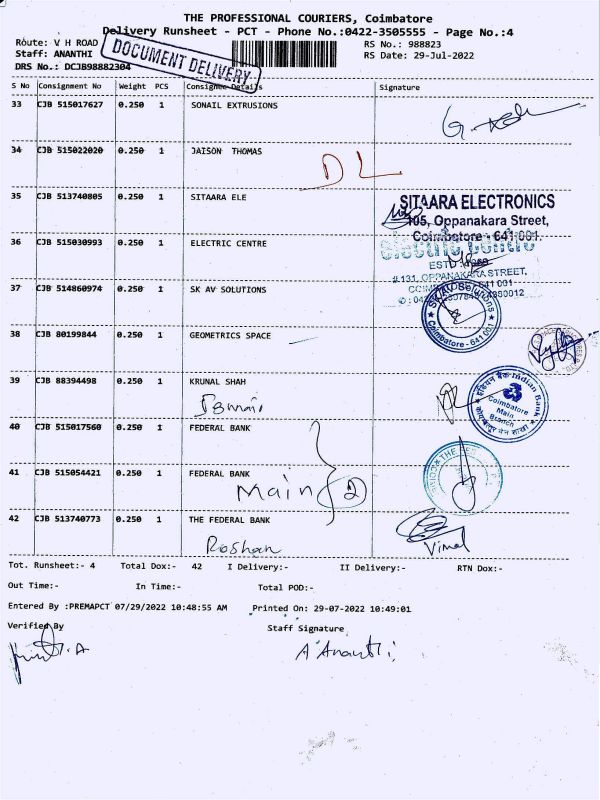 THE PROFESSIONAL COURIERS, Coimbatore
Delivery Runsheet - PCT - Phone No.:0422-3505555 - Page No.:4
Route: V H ROAD
RS No.: 988823
Staff: ANANTHI
RS Date: 29-Jul-2022
DRS No.: DCJB98882304
DOCUMENT DELIVERY
S No Consignment No Weight PCS Consignee Details Signature
33 CJB 515017627 0.250 1 SONAIL EXTRUSIONS
34 CJB 515022020 0.250 1 JAISON THOMAS
DL
35 CJB 513740805 0.250 1 SITAARA ELE
SITAARA ELECTRONICS
105, Oppanakara Street,
Coimbatore - 641 001.
36 CJB 515030993 0.250 1 ELECTRIC CENTRE
electric centre
ESTD
#131, OPPANAKARA STREET,
37 CJB 514860974 0.250 1 SK AV SOLUTIONS
SK AV Solutions
Coimbatore - 641 001
38 CJB 80199844 0.250 1 GEOMETRICS SPACE
39 CJB 88394498 0.250 1 KRUNAL SHAH
इंडियन बैंक Indian Bank
Coimbatore
Main
Branch
40 CJB 515017560 0.250 1 FEDERAL BANK
41 CJB 515054421 0.250 1 FEDERAL BANK
Main 2
42 CJB 513740773 0.250 1 THE FEDERAL BANK
Roshan
Vimal
Tot. Runsheet:- 4 Total Dox:- 42 I Delivery:- II Delivery:- RTN Dox:-
Out Time:- In Time:- Total POD:-
Entered By :PREMAPCT 07/29/2022 10:48:55 AM Printed On: 29-07-2022 10:49:01
Verified By Staff Signature
A Ananthi